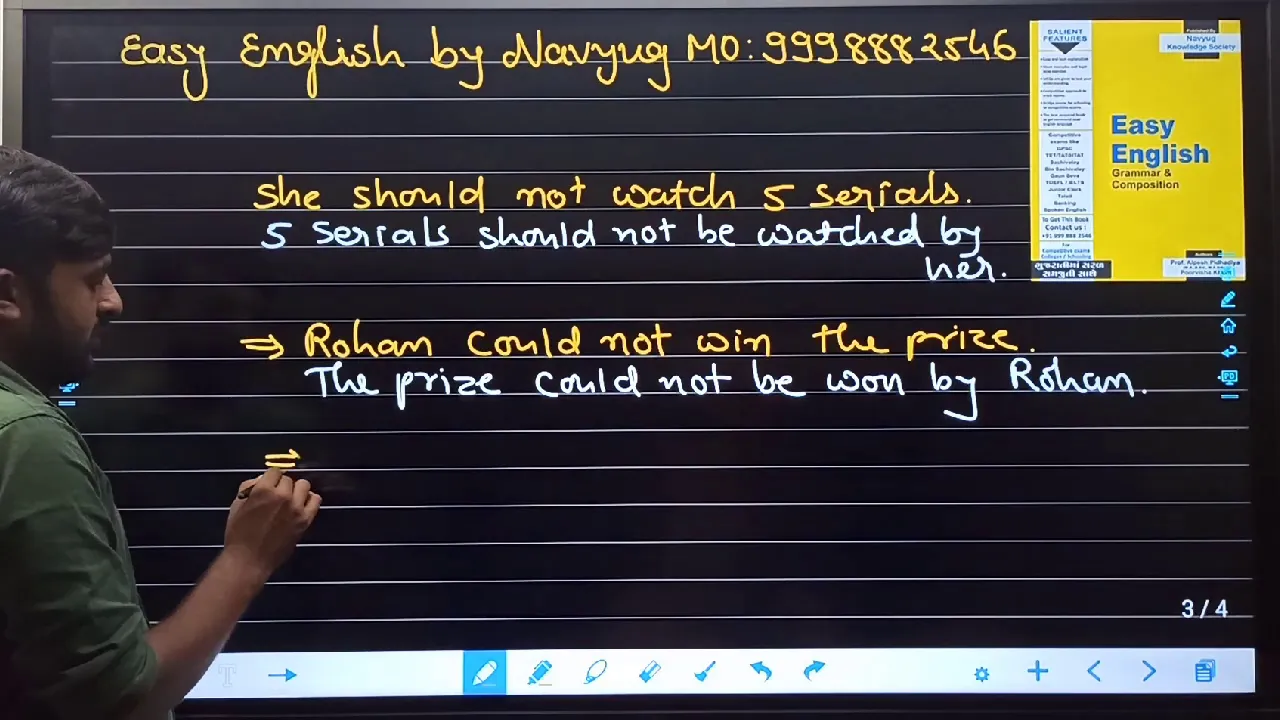 Easy English by Navyug MO: 9998882546
She should not watch 5 serials.
5 Serials should not be watched by
her.
⇒ Rohan could not win the prize.
The prize could not be won by Rohan.
SALIENT
FEATURES
Competitive
TOEFL / IELTS
Junior Clerk
Banking
Spoken English
To Get This Book
Contact us :
+91 999 888 2546
For
Competitive exams
Colleges / Schooling
Published By
Navyug
Knowledge Society
Easy
English
Grammar &
Composition
Authors
Prof. Alpesh Pidhadiya
ગુજરાતીમાં સરળ
સમજુતી સાથે
3 / 4
T